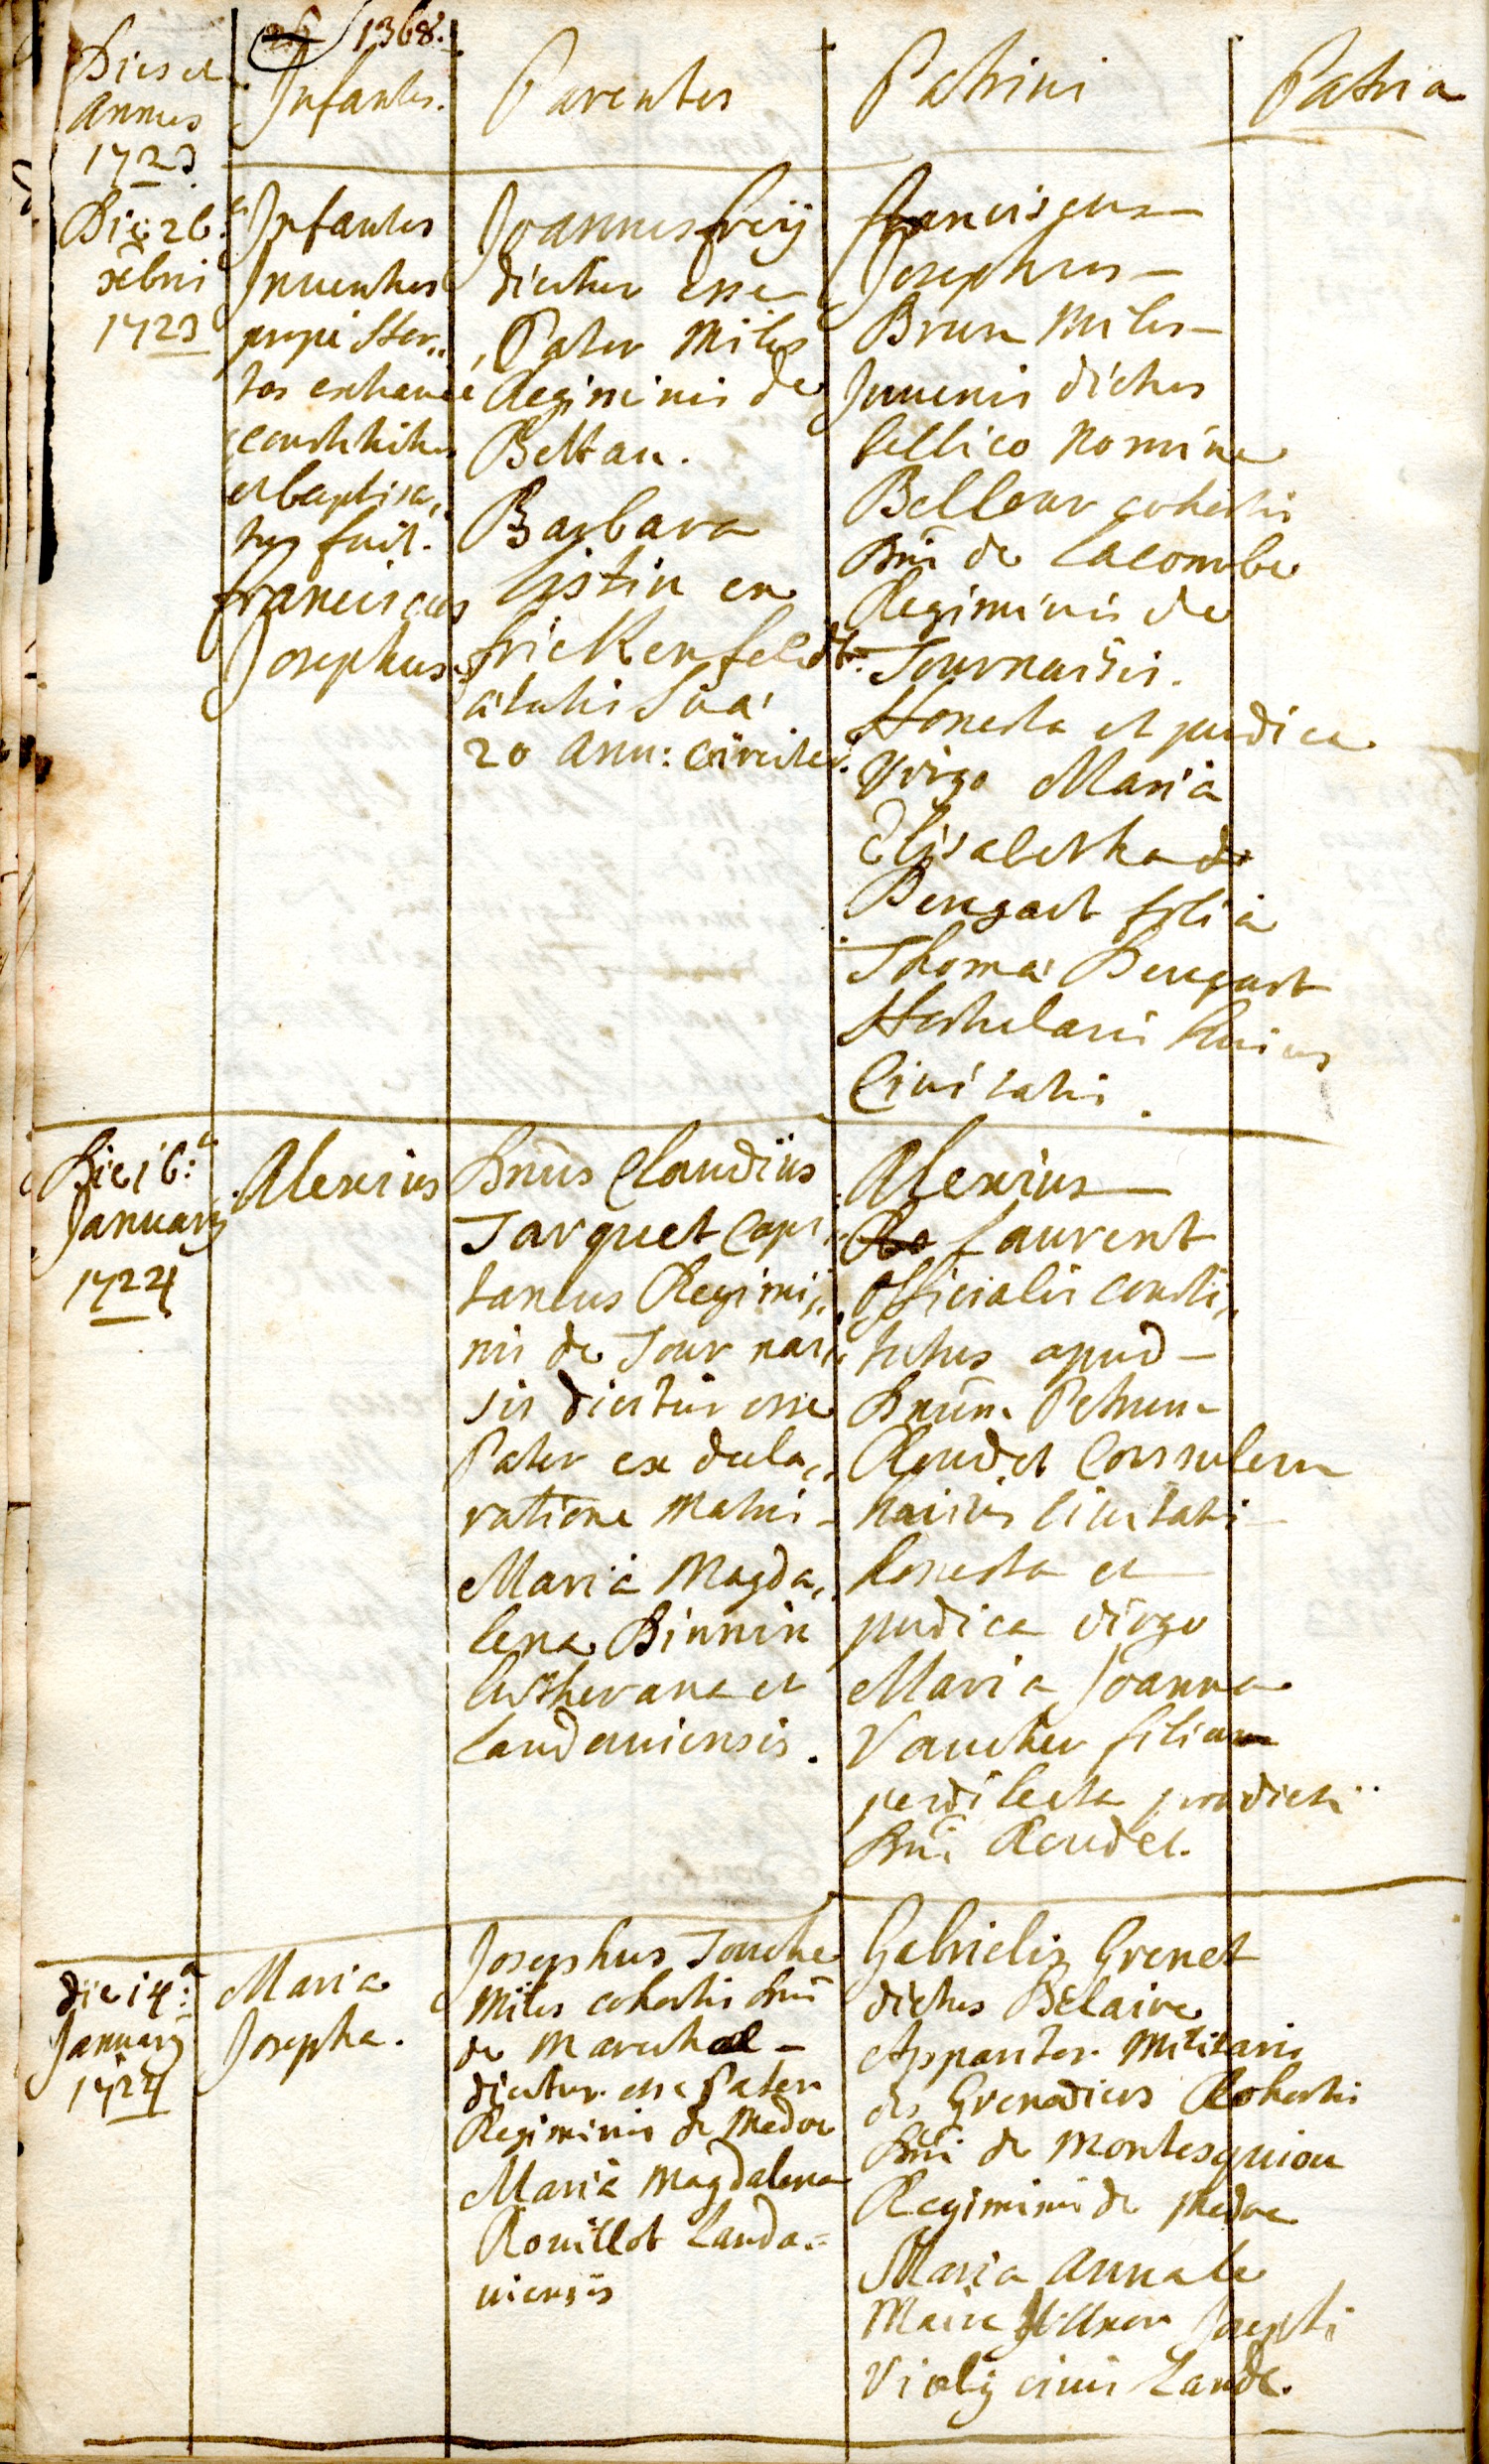 1368.
Dies et
Annus
1723
Infantes.
Parentes
Patrini
Patria
Die 26.a
xbris
1723
Infantes
Inventus
prope Hor„
tos
constitutus
et baptisa„
tus fuit.
Franciscus
Josephus
Joannes Frey
dicitur esse
Pater Miles
Regiminis de
Bettan.
Barbara
Listin ex
frickenfeldt.
ætatis suæ
20 Ann: circiter.
Franciscus
Josephus
Brun Miles
Juvenis dictus
bellico nomine
Bellour cohortis
Dni de Lacombe
Regiminis de
Tournaisis.
Honesta et pudica
Virgo Maria
Elisabetha de
Bengart filia
Thomæ Bengart
huius
Civitatis.
Die 16:a
January
1724
Alexius
Dnus Claudius
Tarquet Capi„
taneus Regimi„
nis de Tournai„
sis dicitur esse
Pater ex decla„
ratione Matris
Maria Magda„
lena Binnin
Lutherana et
Landaviensis.
Alexius
Laurent
officialis consti„
tutus apud
Dnum Petrum
Roudet Consulem
huius Civitatis
honesta et
pudica virgo
Maria Joanna
Vaucher filia
perdilecta prædicti
Dni Roudet.
die 14:a
January
1724
Maria
Josepha.
Josephus Touche
Miles cohortis Dni
de Marechal
dicitur esse Pater
Regiminis de Medoc
Maria Magdalena
Rouillot Landa=
viensis
Gabrielis Grenet
dictus Belaire
Apparitor Militaris
des Grenadiers Cohortis
Dni de Montesquiou
Regiminis de Medoc
Maria Anna le
Maire Uxor Josephi
Violy civis Landa.